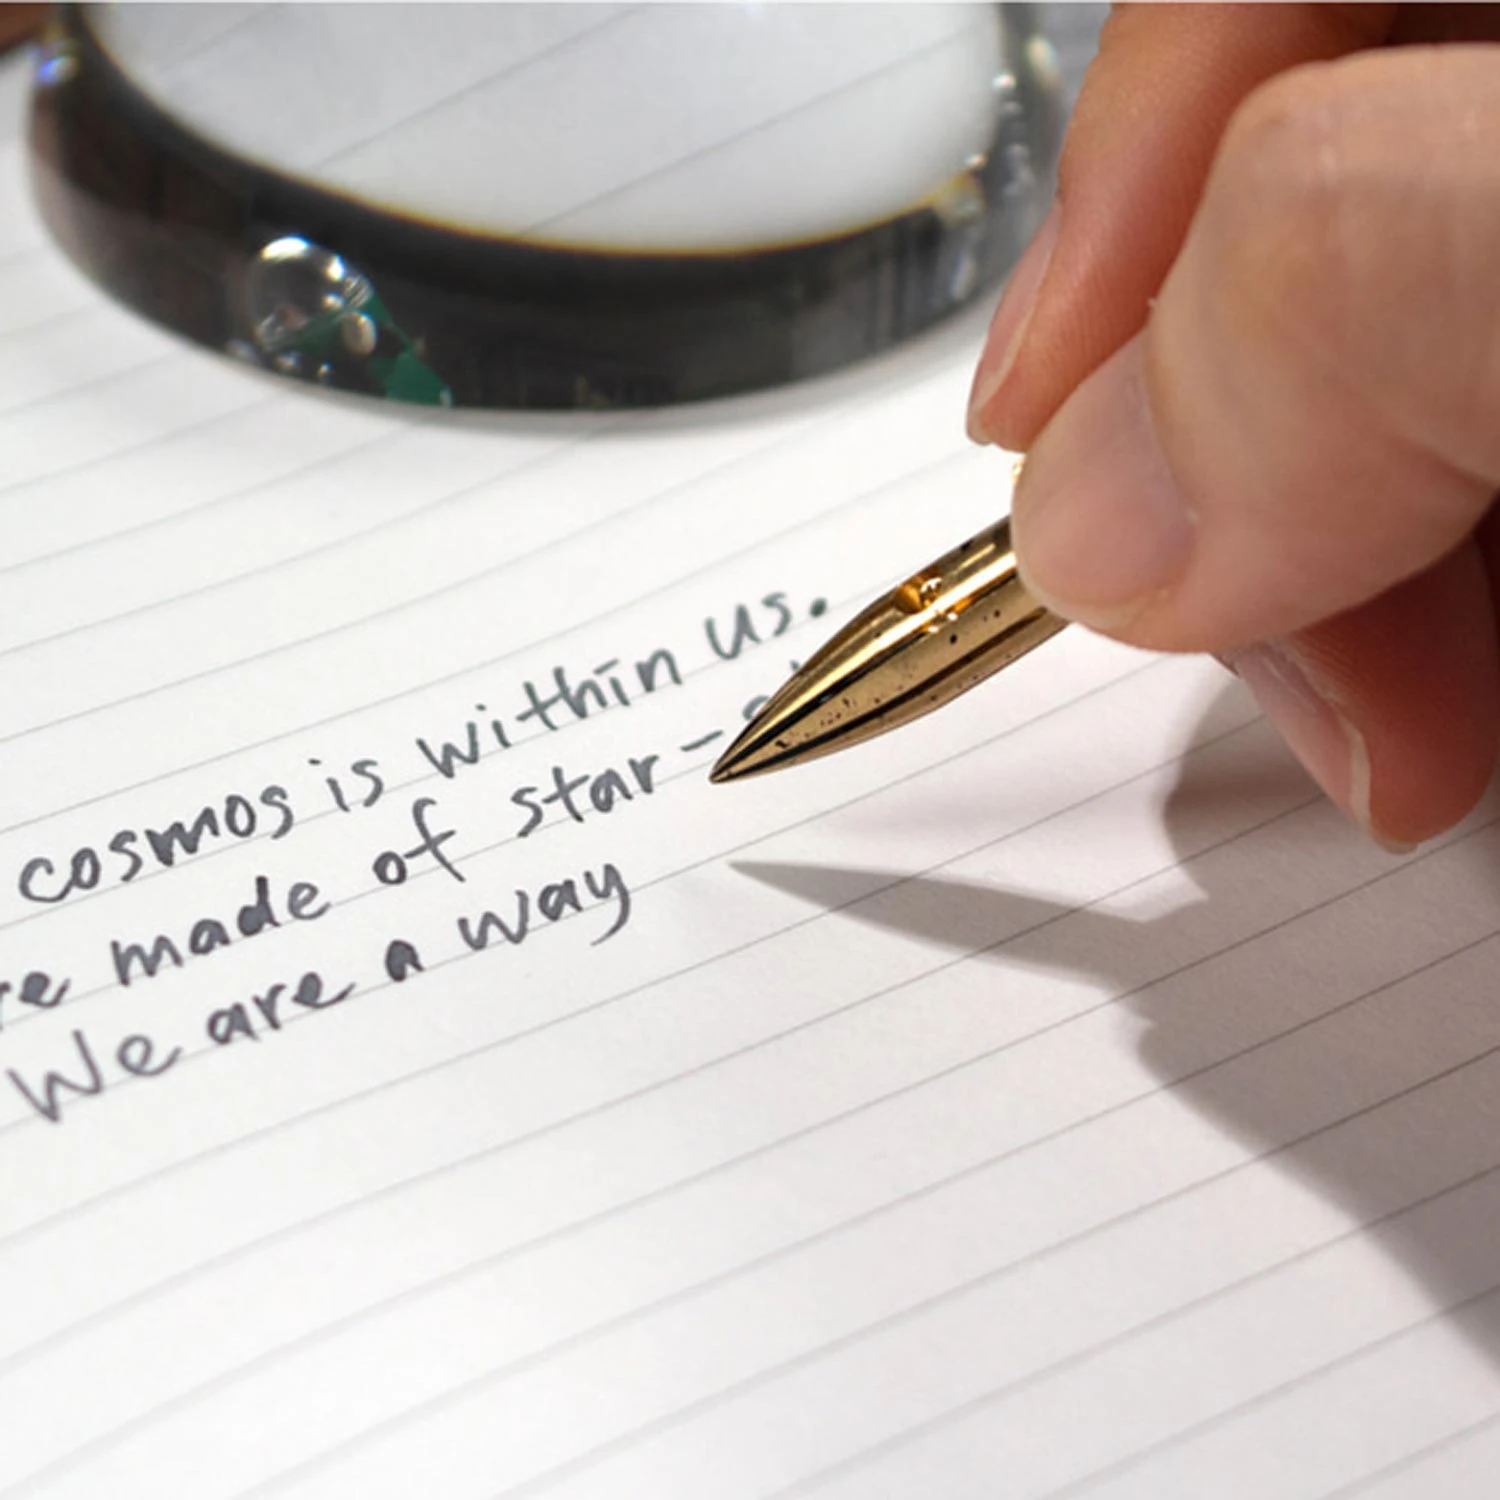 cosmos is within us.
re made of star-
We are a way